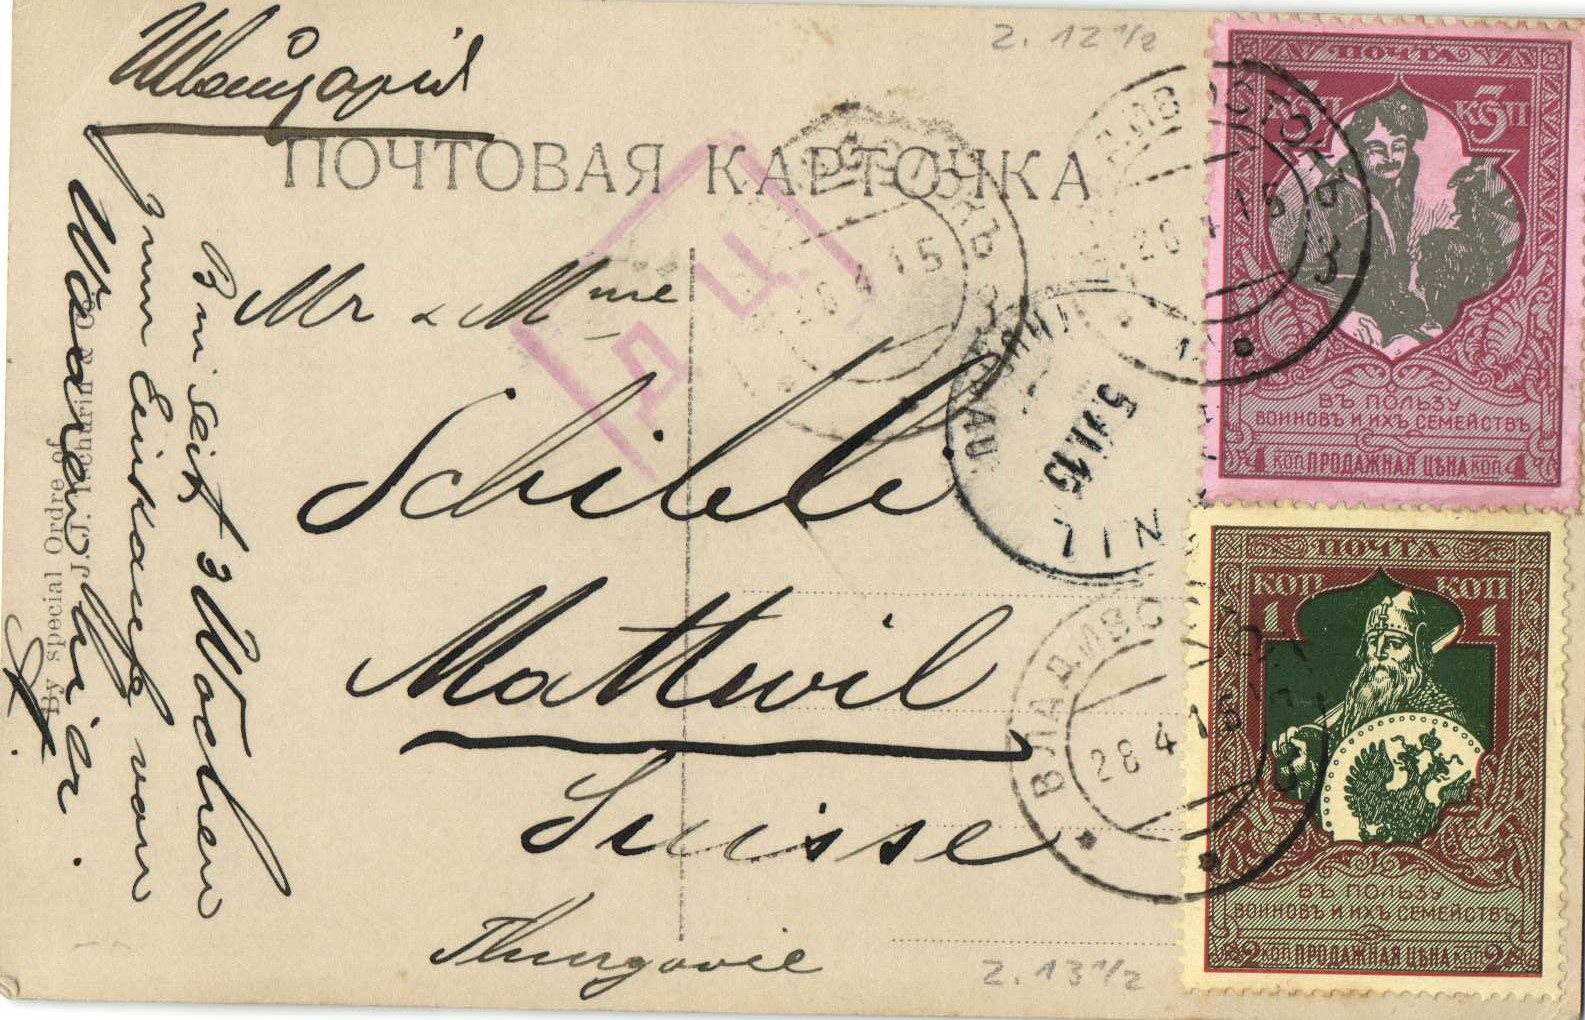 Z. 12 1/2
Швейцарія
ПОЧТОВАЯ КАРТОЧКА
Mr & Mme
Schible
Mattwil
Suisse
Thurgovie
Bin seit 3 Wochen
zum Einkauf von
Waaren hier.
By special Ordre of
J. J. Tschurin & Co.
Д Ц
ВЛАДИВОСТОКЪ
28 4 15
3
ВЛАДИВОСТОКЪ
28 4 15
3
5.VI.15
ВЛАДИВОСТОКЪ
28 4 15
ПОЧТА
3 КОП КОП 3
ВЪ ПОЛЬЗУ
ВОИНОВЪ И ИХЪ СЕМЕЙСТВЪ
4 КОП ПРОДАЖНАЯ ЦѢНА КОП 4
ПОЧТА
КОП КОП
1 1
ВЪ ПОЛЬЗУ
ВОИНОВЪ И ИХЪ СЕМЕЙСТВЪ
2 КОП ПРОДАЖНАЯ ЦѢНА КОП 2
Z. 13 1/2